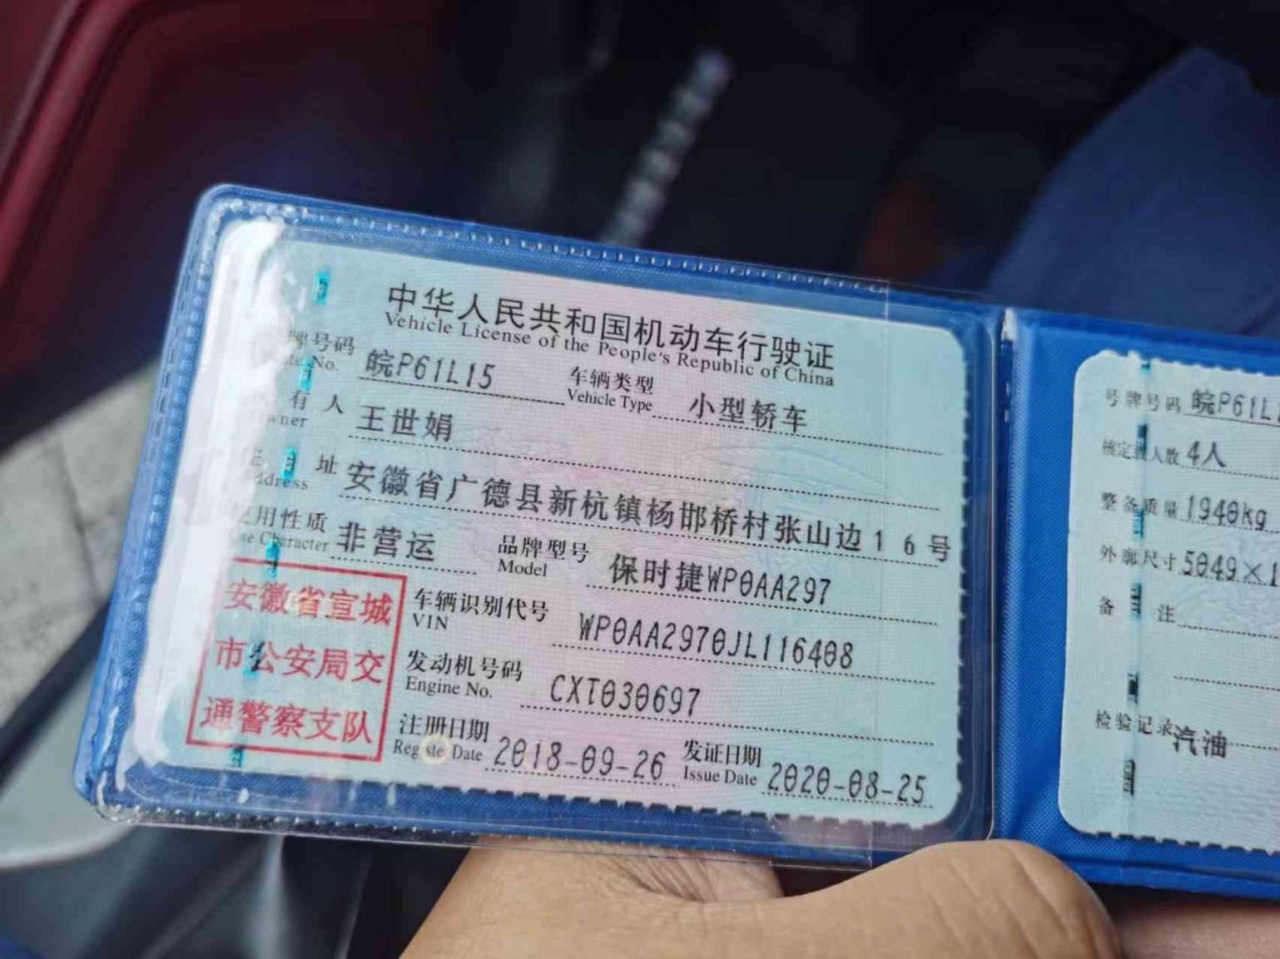 中华人民共和国机动车行驶证
Vehicle License of the People's Republic of China
牌号码 皖P61L15 车辆类型 小型轿车
No. Vehicle Type
有人 王世娟
Owner
址 安徽省广德县新杭镇杨邯桥村张山边16号
Address
使用性质 非营运 品牌型号 保时捷WP0AA297
Use Character Model
车辆识别代号 WP0AA2970JL116408
VIN
发动机号码 CXT030697
Engine No.
注册日期 2018-09-26 发证日期 2020-08-25
Register Date Issue Date
安徽省宣城
市公安局交
通警察支队
号牌号码 皖P61L
核定载人数 4人
整备质量 1940kg
外廓尺寸 5049×1
备注
检验记录 汽油